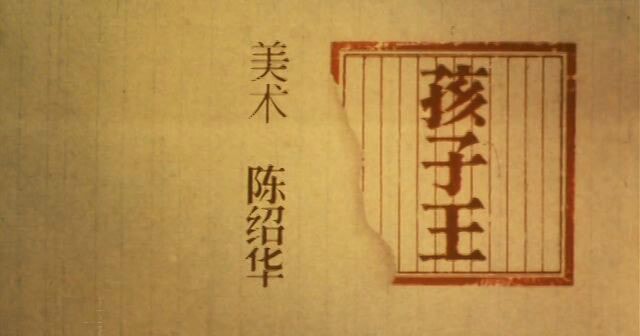 孩子王
美术 陈绍华